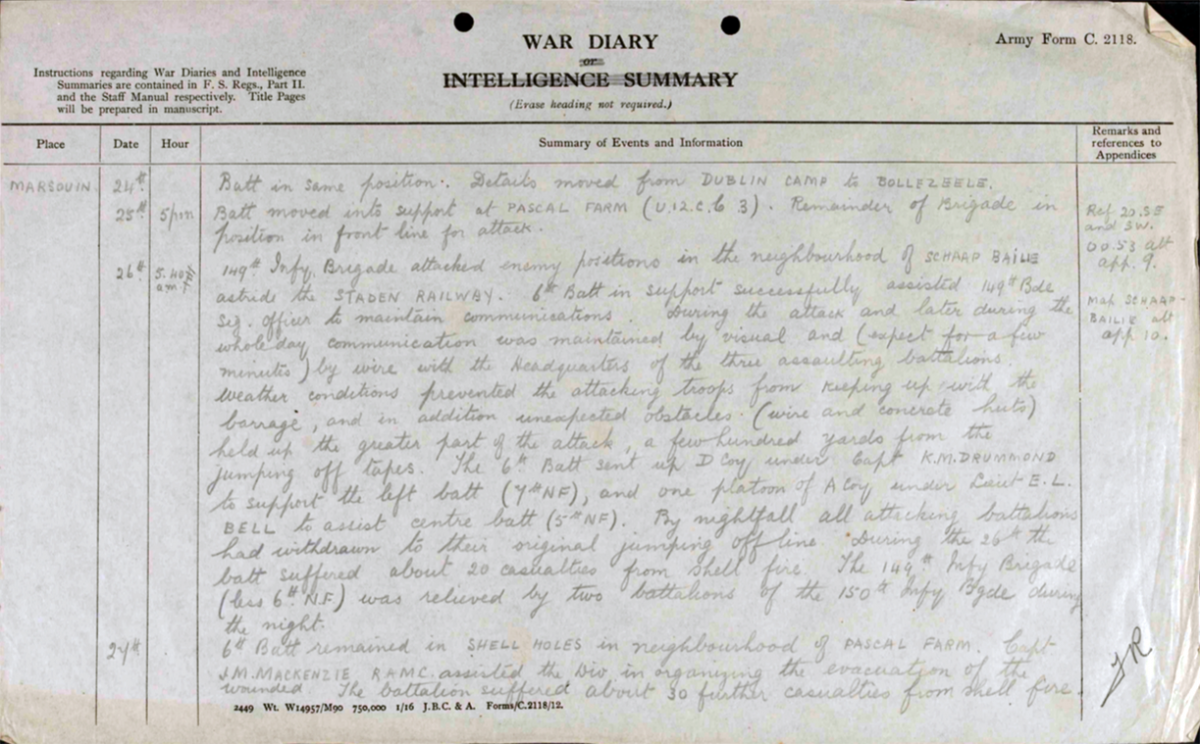 WAR DIARY
or
INTELLIGENCE SUMMARY
(Erase heading not required.)
Army Form C. 2118.
Instructions regarding War Diaries and Intelligence
Summaries are contained in F. S. Regs., Part II.
and the Staff Manual respectively. Title Pages
will be prepared in manuscript.
Place Date Hour Summary of Events and Information Remarks and references to Appendices
MARSOUIN 24th Batt in same position. Details moved from DUBLIN CAMP to BOLLEZEELE.
25th 5pm Batt moved into support at PASCAL FARM (U.12.c.6 3). Remainder of Brigade in
position in front line for attack.
Ref 20.SE
and SW.
OO.53 att
app. 9.
26th 5.40 am 149th Infy. Brigade attacked enemy positions in the neighbourhood of SCHAAP BAILIE
astride the STADEN RAILWAY. 6th Batt in support successfully assisted 149th Bde
Sig. Officer to maintain communications. During the attack and later during the
whole day communication was maintained by visual and (expect for a few
minutes) by wire with the Headquarters of the three assaulting battalions.
Weather conditions prevented the attacking troops from keeping up with the
barrage, and in addition unexpected obstacles (wire and concrete huts)
held up the greater part of the attack, a few hundred yards from the
jumping off tapes. The 6th Batt sent up D Coy under Capt K.M. DRUMMOND
to support the left batt (7th NF), and one platoon of A Coy under Lieut E. L.
BELL to assist centre batt (5th NF). By nightfall all attacking battalions
had withdrawn to their original jumping off line. During the 26th the
batt suffered about 20 casualties from shell fire. The 149th Infy Brigade
(less 6th N.F.) was relieved by two battalions of the 150th Infy Bgde during
the night.
Map SCHAAP-
BAILIE att
app 10.
27th 6th Batt remained in SHELL HOLES in neighbourhood of PASCAL FARM. Capt
J.M. MACKENZIE RAMC. assisted the Div in organizing the evacuation of the
wounded. The battalion suffered about 30 further casualties from shell fire.
JR
2449 Wt. W14957/M90 750,000 1/16 J.B.C. & A. Forms/C.2118/12.